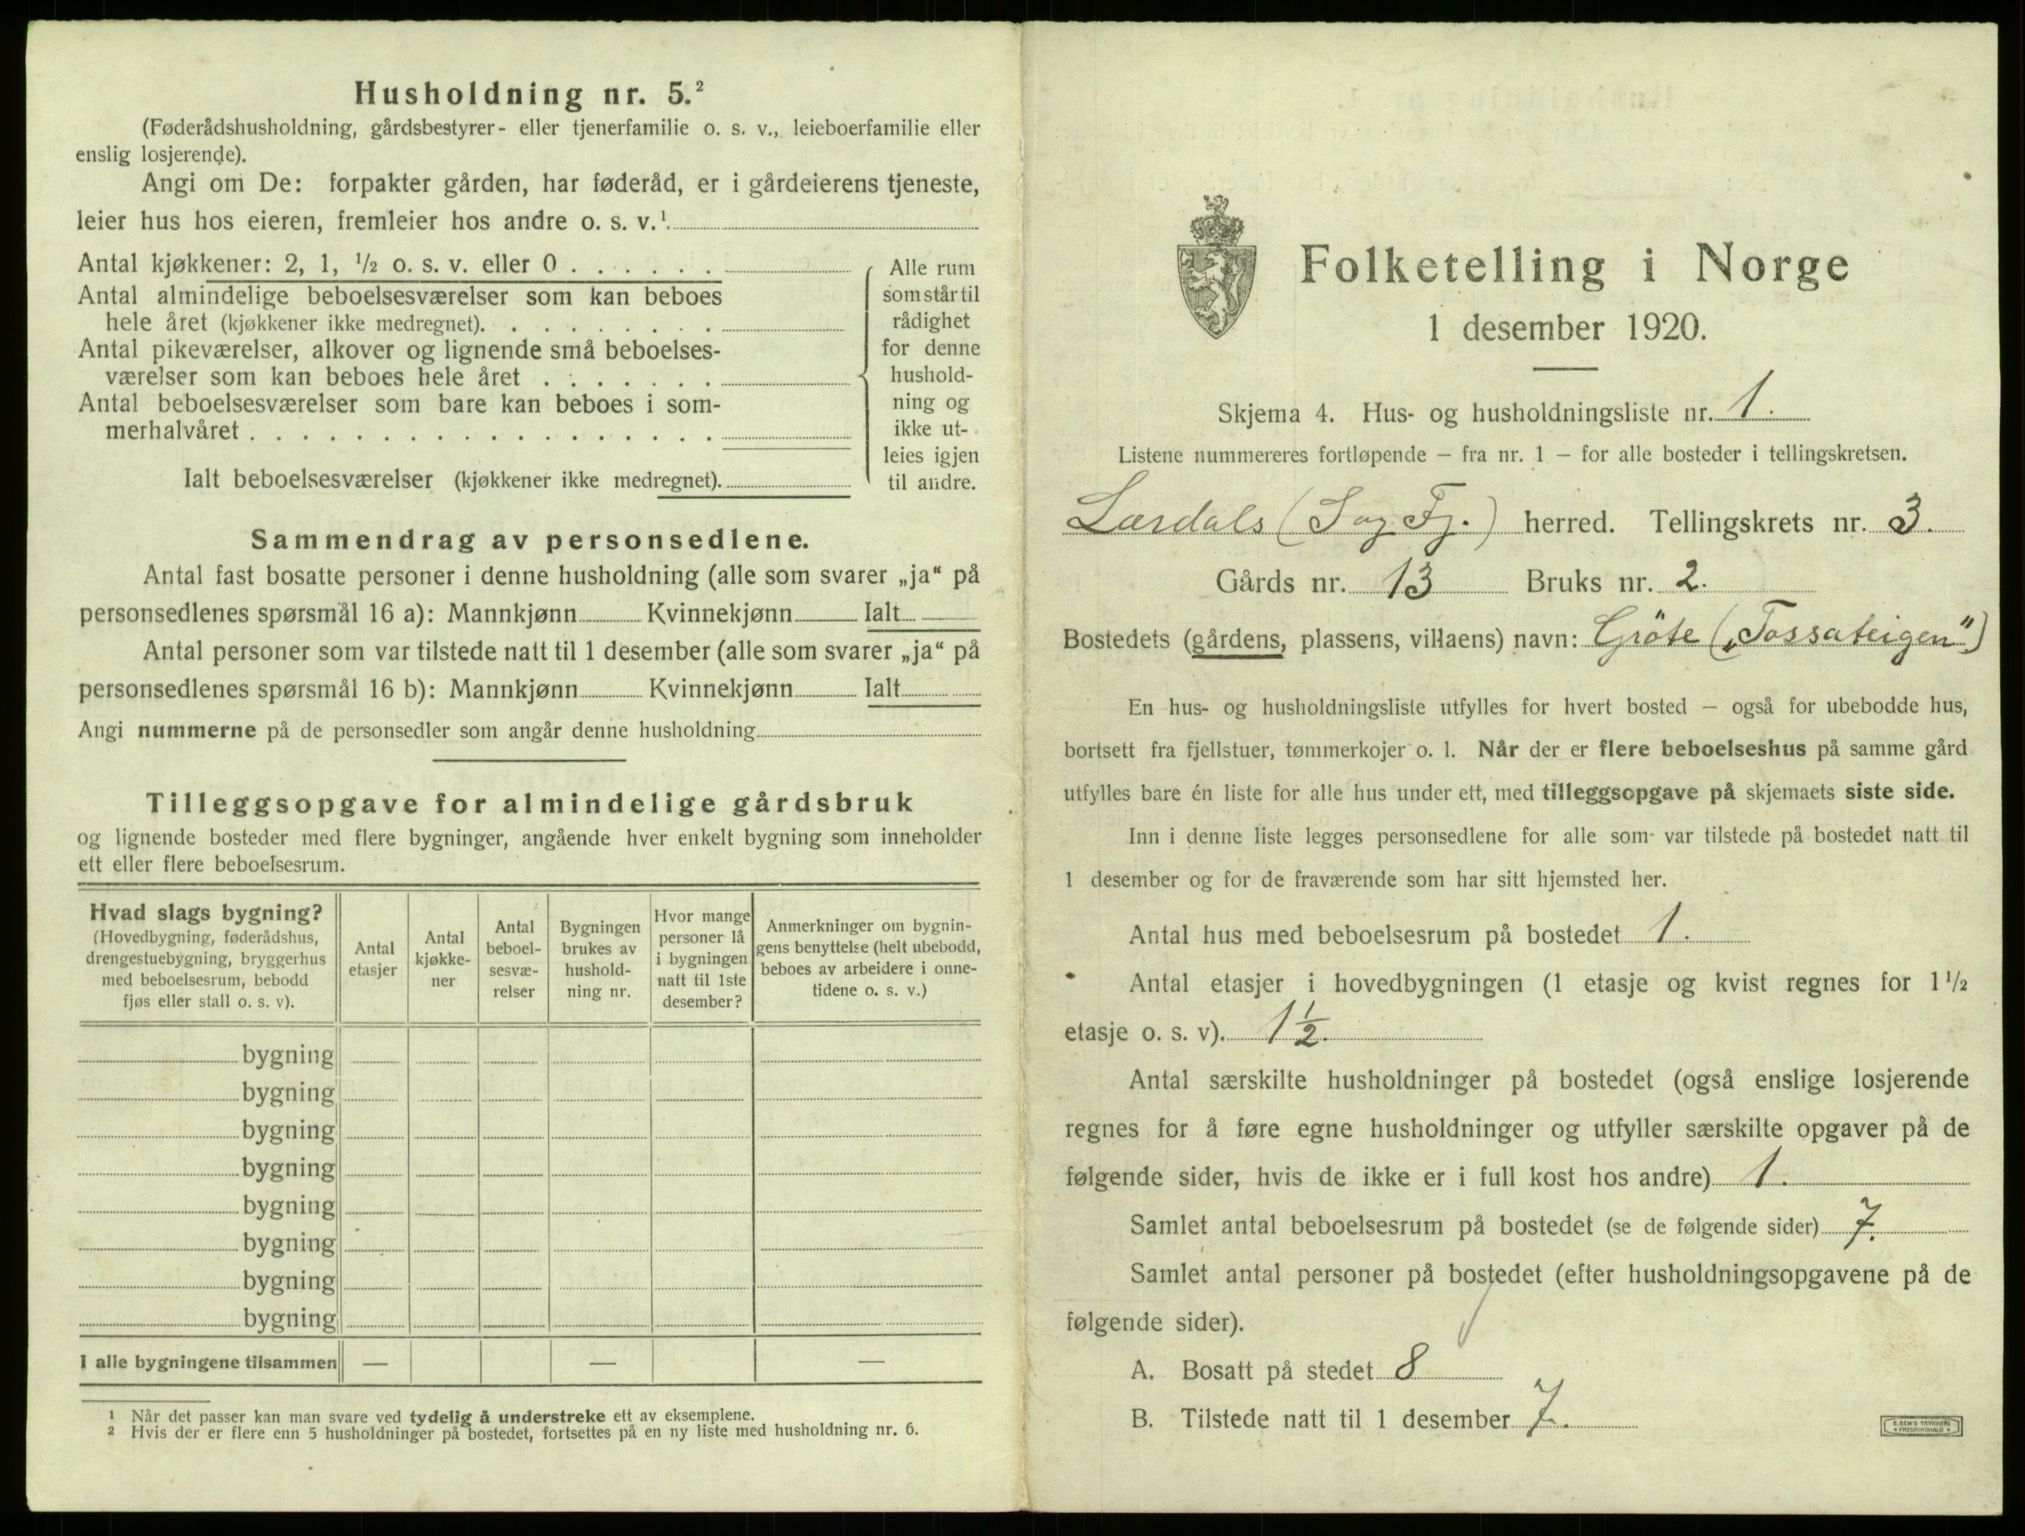 Husholdning nr. 5.²
(Føderådshusholdning, gårdsbestyrer- eller tjenerfamilie o. s. v., leieboerfamilie eller
enslig losjerende).
Angi om De: forpakter gården, har føderåd, er i gårdeierens tjeneste,
leier hus hos eieren, fremleier hos andre o. s. v.¹
Antal kjøkkener: 2, 1, ½ o. s. v. eller 0
Antal almindelige beboelsesværelser som kan beboes
hele året (kjøkkener ikke medregnet).
Antal pikeværelser, alkover og lignende små beboelses-
værelser som kan beboes hele året
Antal beboelsesværelser som bare kan beboes i som-
merhalvåret
Ialt beboelsesværelser (kjøkkener ikke medregnet).
Alle rum
som står til
rådighet
for denne
hushold-
ning og
ikke ut-
leies igjen
til andre.
Sammendrag av personsedlene.
Antal fast bosatte personer i denne husholdning (alle som svarer „ja“ på
personsedlenes spørsmål 16 a): Mannkjønn Kvinnekjønn Ialt
Antal personer som var tilstede natt til 1 desember (alle som svarer „ja“ på
personsedlenes spørsmål 16 b): Mannkjønn Kvinnekjønn Ialt
Angi nummerne på de personsedler som angår denne husholdning
Tilleggsopgave for almindelige gårdsbruk
og lignende bosteder med flere bygninger, angående hver enkelt bygning som inneholder
ett eller flere beboelsesrum.
Hvad slags bygning?
(Hovedbygning, føderådshus,
drengestuebygning, bryggerhus
med beboelsesrum, bebodd
fjøs eller stall o. s. v).
Antal
etasjer
Antal
kjøkke-
ner
Antal
beboel-
sesvæ-
relser
Bygningen
brukes av
hushold-
ning nr.
Hvor mange
personer lå
i bygningen
natt til 1ste
desember?
Anmerkninger om bygnin-
gens benyttelse (helt ubebodd,
beboes av arbeidere i onne-
tidene o. s. v.)
bygning
bygning
bygning
bygning
bygning
bygning
bygning
bygning
I alle bygningene tilsammen — — —
¹ Når det passer kan man svare ved tydelig å understreke ett av eksemplene.
² Hvis der er flere enn 5 husholdninger på bostedet, fortsettes på en ny liste med husholdning nr. 6.
Folketelling i Norge
1 desember 1920.
Skjema 4. Hus- og husholdningsliste nr. 1.
Listene nummereres fortløpende – fra nr. 1 – for alle bosteder i tellingskretsen.
Lærdals (Sog Fj.) herred. Tellingskrets nr. 3.
Gårds nr. 13 Bruks nr. 2.
Bostedets (gårdens, plassens, villaens) navn: Gröte („Fossateigen“)
En hus- og husholdningsliste utfylles for hvert bosted – også for ubebodde hus,
bortsett fra fjellstuer, tømmerkojer o. l. Når der er flere beboelseshus på samme gård
utfylles bare én liste for alle hus under ett, med tilleggsopgave på skjemaets siste side.
Inn i denne liste legges personsedlene for alle som var tilstede på bostedet natt til
1 desember og for de fraværende som har sitt hjemsted her.
Antal hus med beboelsesrum på bostedet 1.
Antal etasjer i hovedbygningen (1 etasje og kvist regnes for 1½
etasje o. s. v). 1½.
Antal særskilte husholdninger på bostedet (også enslige losjerende
regnes for å føre egne husholdninger og utfyller særskilte opgaver på de
følgende sider, hvis de ikke er i full kost hos andre) 1.
Samlet antal beboelsesrum på bostedet (se de følgende sider) 7.
Samlet antal personer på bostedet (efter husholdningsopgavene på de
følgende sider).
A. Bosatt på stedet 8
B. Tilstede natt til 1 desember 7.